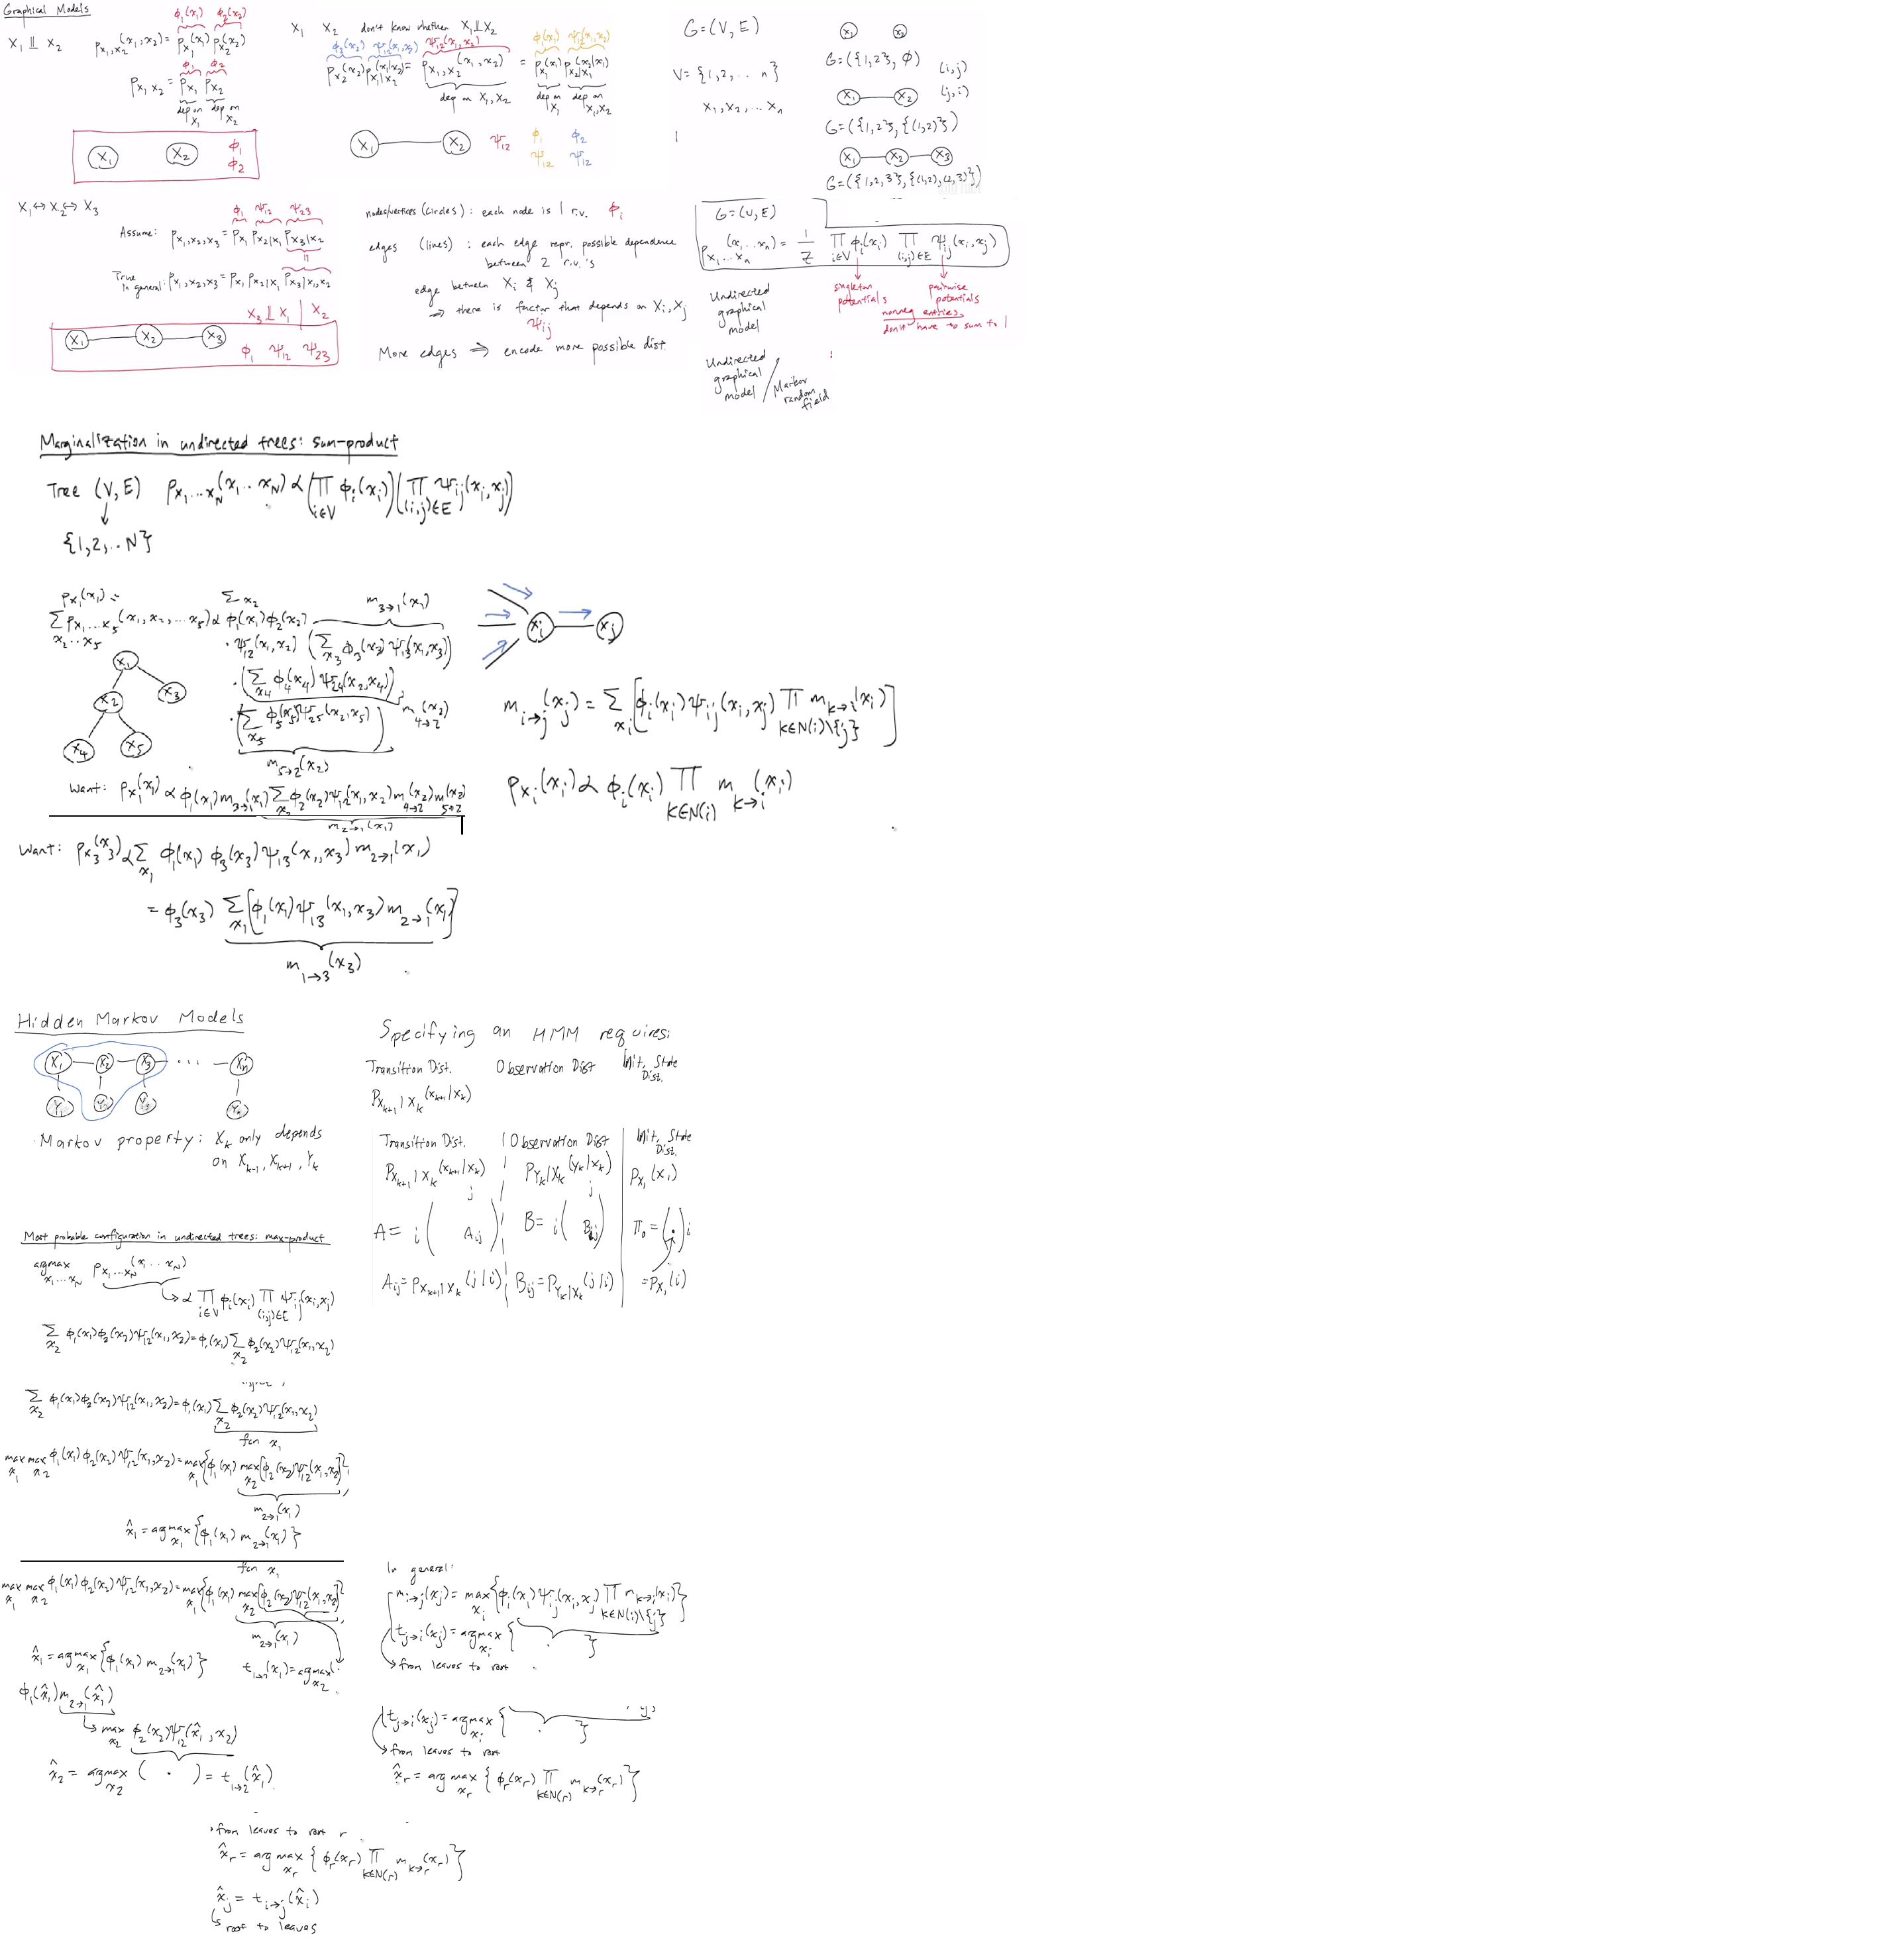 Graphical Models
X₁ ⫫ X₂
p_{X₁,X₂}(x₁,x₂) = p_{X₁}(x₁) p_{X₂}(x₂)
ϕ₁(x₁) ϕ₂(x₂)
p_{X₁,X₂} = p_{X₁} p_{X₂}
ϕ₁ ϕ₂
dep on X₁ dep on X₂
X₁ X₂ ϕ₁ ϕ₂
X₁ X₂ don't know whether X₁ ⫫ X₂
ϕ₂(x₂) ψ₁₂(x₁,x₂) ψ₁₂(x₁,x₂) ϕ₁(x₁) ψ₁₂(x₁,x₂)
p_{X₂}(x₂) p_{X₁|X₂}(x₁|x₂) = p_{X₁,X₂}(x₁,x₂) = p_{X₁}(x₁) p_{X₂|X₁}(x₂|x₁)
dep on X₁,X₂ dep on X₁ dep on X₁,X₂
X₁ X₂ ψ₁₂ ϕ₁ ψ₁₂ ϕ₂ ψ₁₂
G=(V,E)
V={1,2,... n}
X₁,X₂,... Xₙ
X₁ X₂
G=({1,2},∅)
(i,j)
(j,i)
X₁ X₂
G=({1,2},{(1,2)})
X₁ X₂ X₃
G=({1,2,3},{(1,2),(2,3)})
X₁↔X₂↔X₃
ϕ₁ ψ₁₂ ψ₂₃
Assume: p_{X₁,X₂,X₃} = p_{X₁} p_{X₂|X₁} p_{X₃|X₂}
True in general: p_{X₁,X₂,X₃} = p_{X₁} p_{X₂|X₁} p_{X₃|X₁,X₂}
X₃ ⫫ X₁ | X₂
X₁ X₂ X₃ ϕ₁ ψ₁₂ ψ₂₃
nodes/vertices (circles): each node is 1 r.v. ϕᵢ
edges (lines): each edge repr. possible dependence
between 2 r.v.'s
edge between Xᵢ & Xⱼ
⇒ there is factor that depends on Xᵢ,Xⱼ
ψᵢⱼ
More edges ⇒ encode more possible dist.
G=(V,E)
p_{X₁...Xₙ}(x₁...xₙ) = 1/Z ∏_{i∈V} ϕᵢ(xᵢ) ∏_{(i,j)∈E} ψᵢⱼ(xᵢ,xⱼ)
singleton potentials
pairwise potentials
nonneg entries,
don't have to sum to 1
Undirected
graphical
model
Undirected
graphical
model / Markov
random
field
Marginalization in undirected trees: sum-product
Tree (V,E) p_{X₁...X_N}(x₁...x_N) ∝ (∏_{i∈V} ϕᵢ(xᵢ)) (∏_{(i,j)∈E} ψᵢⱼ(xᵢ,xⱼ))
{1,2,..N}
p_{X₁}(x₁) =
∑_{x₂...x₅} p_{X₁...X₅}(x₁,x₂,...x₅) ∝ ϕ₁(x₁) ∑_{x₂} ϕ₂(x₂)
m_{3→1}(x₁)
· ψ₁₂(x₁,x₂) (∑_{x₃} ϕ₃(x₃) ψ₁₃(x₁,x₃))
· (∑_{x₄} ϕ₄(x₄) ψ₂₄(x₂,x₄))
m_{4→2}(x₂)
· (∑_{x₅} ϕ₅(x₅) ψ₂₅(x₂,x₅))
m_{5→2}(x₂)
X₁ X₂ X₃ X₄ X₅
Want: p_{X₁}(x₁) ∝ ϕ₁(x₁) m_{3→1}(x₁) ∑_{x₂} ϕ₂(x₂) ψ₁₂(x₁,x₂) m_{4→2}(x₂) m_{5→2}(x₂)
m_{2→1}(x₁)
Xᵢ Xⱼ
m_{i→j}(xⱼ) = ∑_{xᵢ} [ϕᵢ(xᵢ) ψᵢⱼ(xᵢ,xⱼ) ∏_{k∈N(i)\{j}} m_{k→i}(xᵢ)]
p_{Xᵢ}(xᵢ) ∝ ϕᵢ(xᵢ) ∏_{k∈N(i)} m_{k→i}(xᵢ)
Want: p_{X₃}(x₃) ∝ ∑_{x₁} ϕ₁(x₁) ϕ₃(x₃) ψ₁₃(x₁,x₃) m_{2→1}(x₁)
= ϕ₃(x₃) ∑_{x₁} [ϕ₁(x₁) ψ₁₃(x₁,x₃) m_{2→1}(x₁)]
m_{1→3}(x₃)
Hidden Markov Models
X₁ X₂ X₃ ... Xₙ
Y₁ Y₂ Y₃ Yₙ
Markov property: X_k only depends
on X_{k-1}, X_{k+1}, Y_k
Specifying an HMM requires:
Transition Dist. Observation Dist Init. State Dist.
p_{X_{k+1}|X_k}(x_{k+1}|x_k)
Transition Dist. | Observation Dist | Init. State Dist.
p_{X_{k+1}|X_k}(x_{k+1}|x_k) p_{Y_k|X_k}(y_k|x_k) p_{X₁}(x₁)
A = i ( j Aᵢⱼ ) B = i ( j Bᵢⱼ ) π₀ = ( · ) i
Aᵢⱼ = p_{X_{k+1}|X_k}(j|i) Bᵢⱼ = p_{Y_k|X_k}(j|i) = p_{X₁}(i)
Most probable configuration in undirected trees: max-product
argmax_{x₁...x_N} p_{X₁...X_N}(x₁...x_N)
∝ ∏_{i∈V} ϕᵢ(xᵢ) ∏_{(i,j)∈E} ψᵢⱼ(xᵢ,xⱼ)
∑_{x₂} ϕ₁(x₁)ϕ₂(x₂)ψ₁₂(x₁,x₂) = ϕ₁(x₁) ∑_{x₂} ϕ₂(x₂)ψ₁₂(x₁,x₂)
∑_{x₂} ϕ₁(x₁)ϕ₂(x₂)ψ₁₂(x₁,x₂) = ϕ₁(x₁) ∑_{x₂} ϕ₂(x₂)ψ₁₂(x₁,x₂)
fcn x₁
max_{x₁} max_{x₂} ϕ₁(x₁)ϕ₂(x₂)ψ₁₂(x₁,x₂) = max_{x₁} {ϕ₁(x₁) max_{x₂} [ϕ₂(x₂)ψ₁₂(x₁,x₂)]}
m_{2→1}(x₁)
x̂₁ = argmax_{x₁} {ϕ₁(x₁) m_{2→1}(x₁)}
fcn x₁
max_{x₁} max_{x₂} ϕ₁(x₁)ϕ₂(x₂)ψ₁₂(x₁,x₂) = max_{x₁} {ϕ₁(x₁) max_{x₂} [ϕ₂(x₂)ψ₁₂(x₁,x₂)]}
m_{2→1}(x₁)
x̂₁ = argmax_{x₁} {ϕ₁(x₁) m_{2→1}(x₁)} t_{1→2}(x₁) = argmax_{x₂} (·
ϕ₁(x̂₁) m_{2→1}(x̂₁)
max_{x₂} ϕ₂(x₂)ψ₁₂(x̂₁,x₂)
x̂₂ = argmax_{x₂} ( · ) = t_{1→2}(x̂₁)
In general:
m_{i→j}(xⱼ) = max_{xᵢ} {ϕᵢ(xᵢ) ψᵢⱼ(xᵢ,xⱼ) ∏_{k∈N(i)\{j}} m_{k→i}(xᵢ)}
t_{j→i}(xⱼ) = argmax_{xᵢ} { · }
from leaves to root
t_{j→i}(xⱼ) = argmax_{xᵢ} { · }
from leaves to root
x̂_r = argmax_{x_r} {ϕ_r(x_r) ∏_{k∈N(r)} m_{k→r}(x_r)}
from leaves to root r
x̂_r = argmax_{x_r} {ϕ_r(x_r) ∏_{k∈N(r)} m_{k→r}(x_r)}
x̂ⱼ = t_{i→j}(x̂ᵢ)
root to leaves